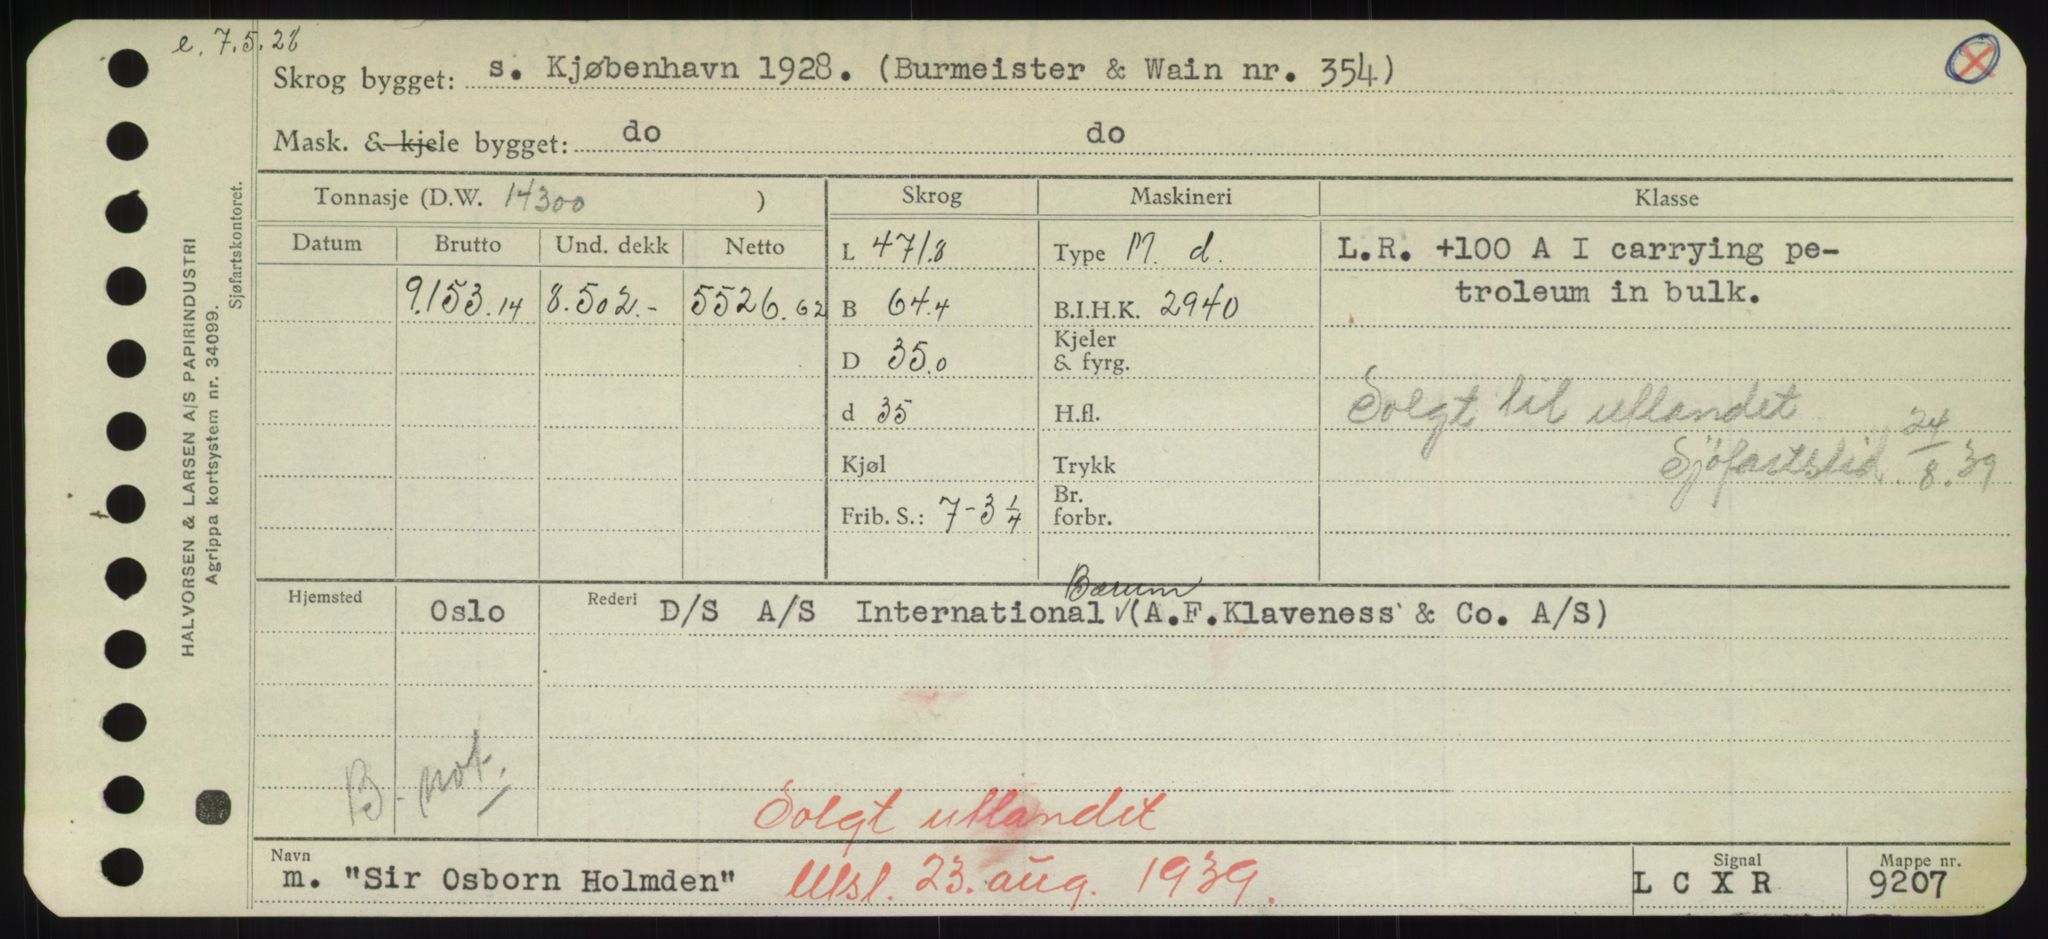 e. 7.5.28
Skrog bygget: s. Kjøbenhavn 1928. (Burmeister & Wain nr. 354)
Mask. & kjele bygget: do do
Tonnasje (D.W. 14300 ) Skrog Maskineri Klasse
Datum Brutto Und. dekk Netto L 471.8 Type M. d. L.R. +100 A I carrying pe-
9.153.14 8.502.- 5526.62 B 64.4 B.I.H.K. 2940 troleum in bulk.
D 35.0 Kjeler & fyrg.
d 35 H.fl. Solgt til utlandet
Kjøl Trykk Sjöfartstid. 24/8.39
Frib. S.: 7-3 1/4 Br. forbr.
Bærum
Hjemsted Oslo Rederi D/S A/S International √(A.F.Klaveness & Co. A/S)
B - not.
Solgt utlandet
Navn Signal Mappe nr.
m. "Sir Osborn Holmden" Utsl. 23. aug. 1939. L C X R 9207
HALVORSEN & LARSEN A/S PAPIRINDUSTRI
Agrippa kortsystem nr. 34099.
Sjøfartskontoret.